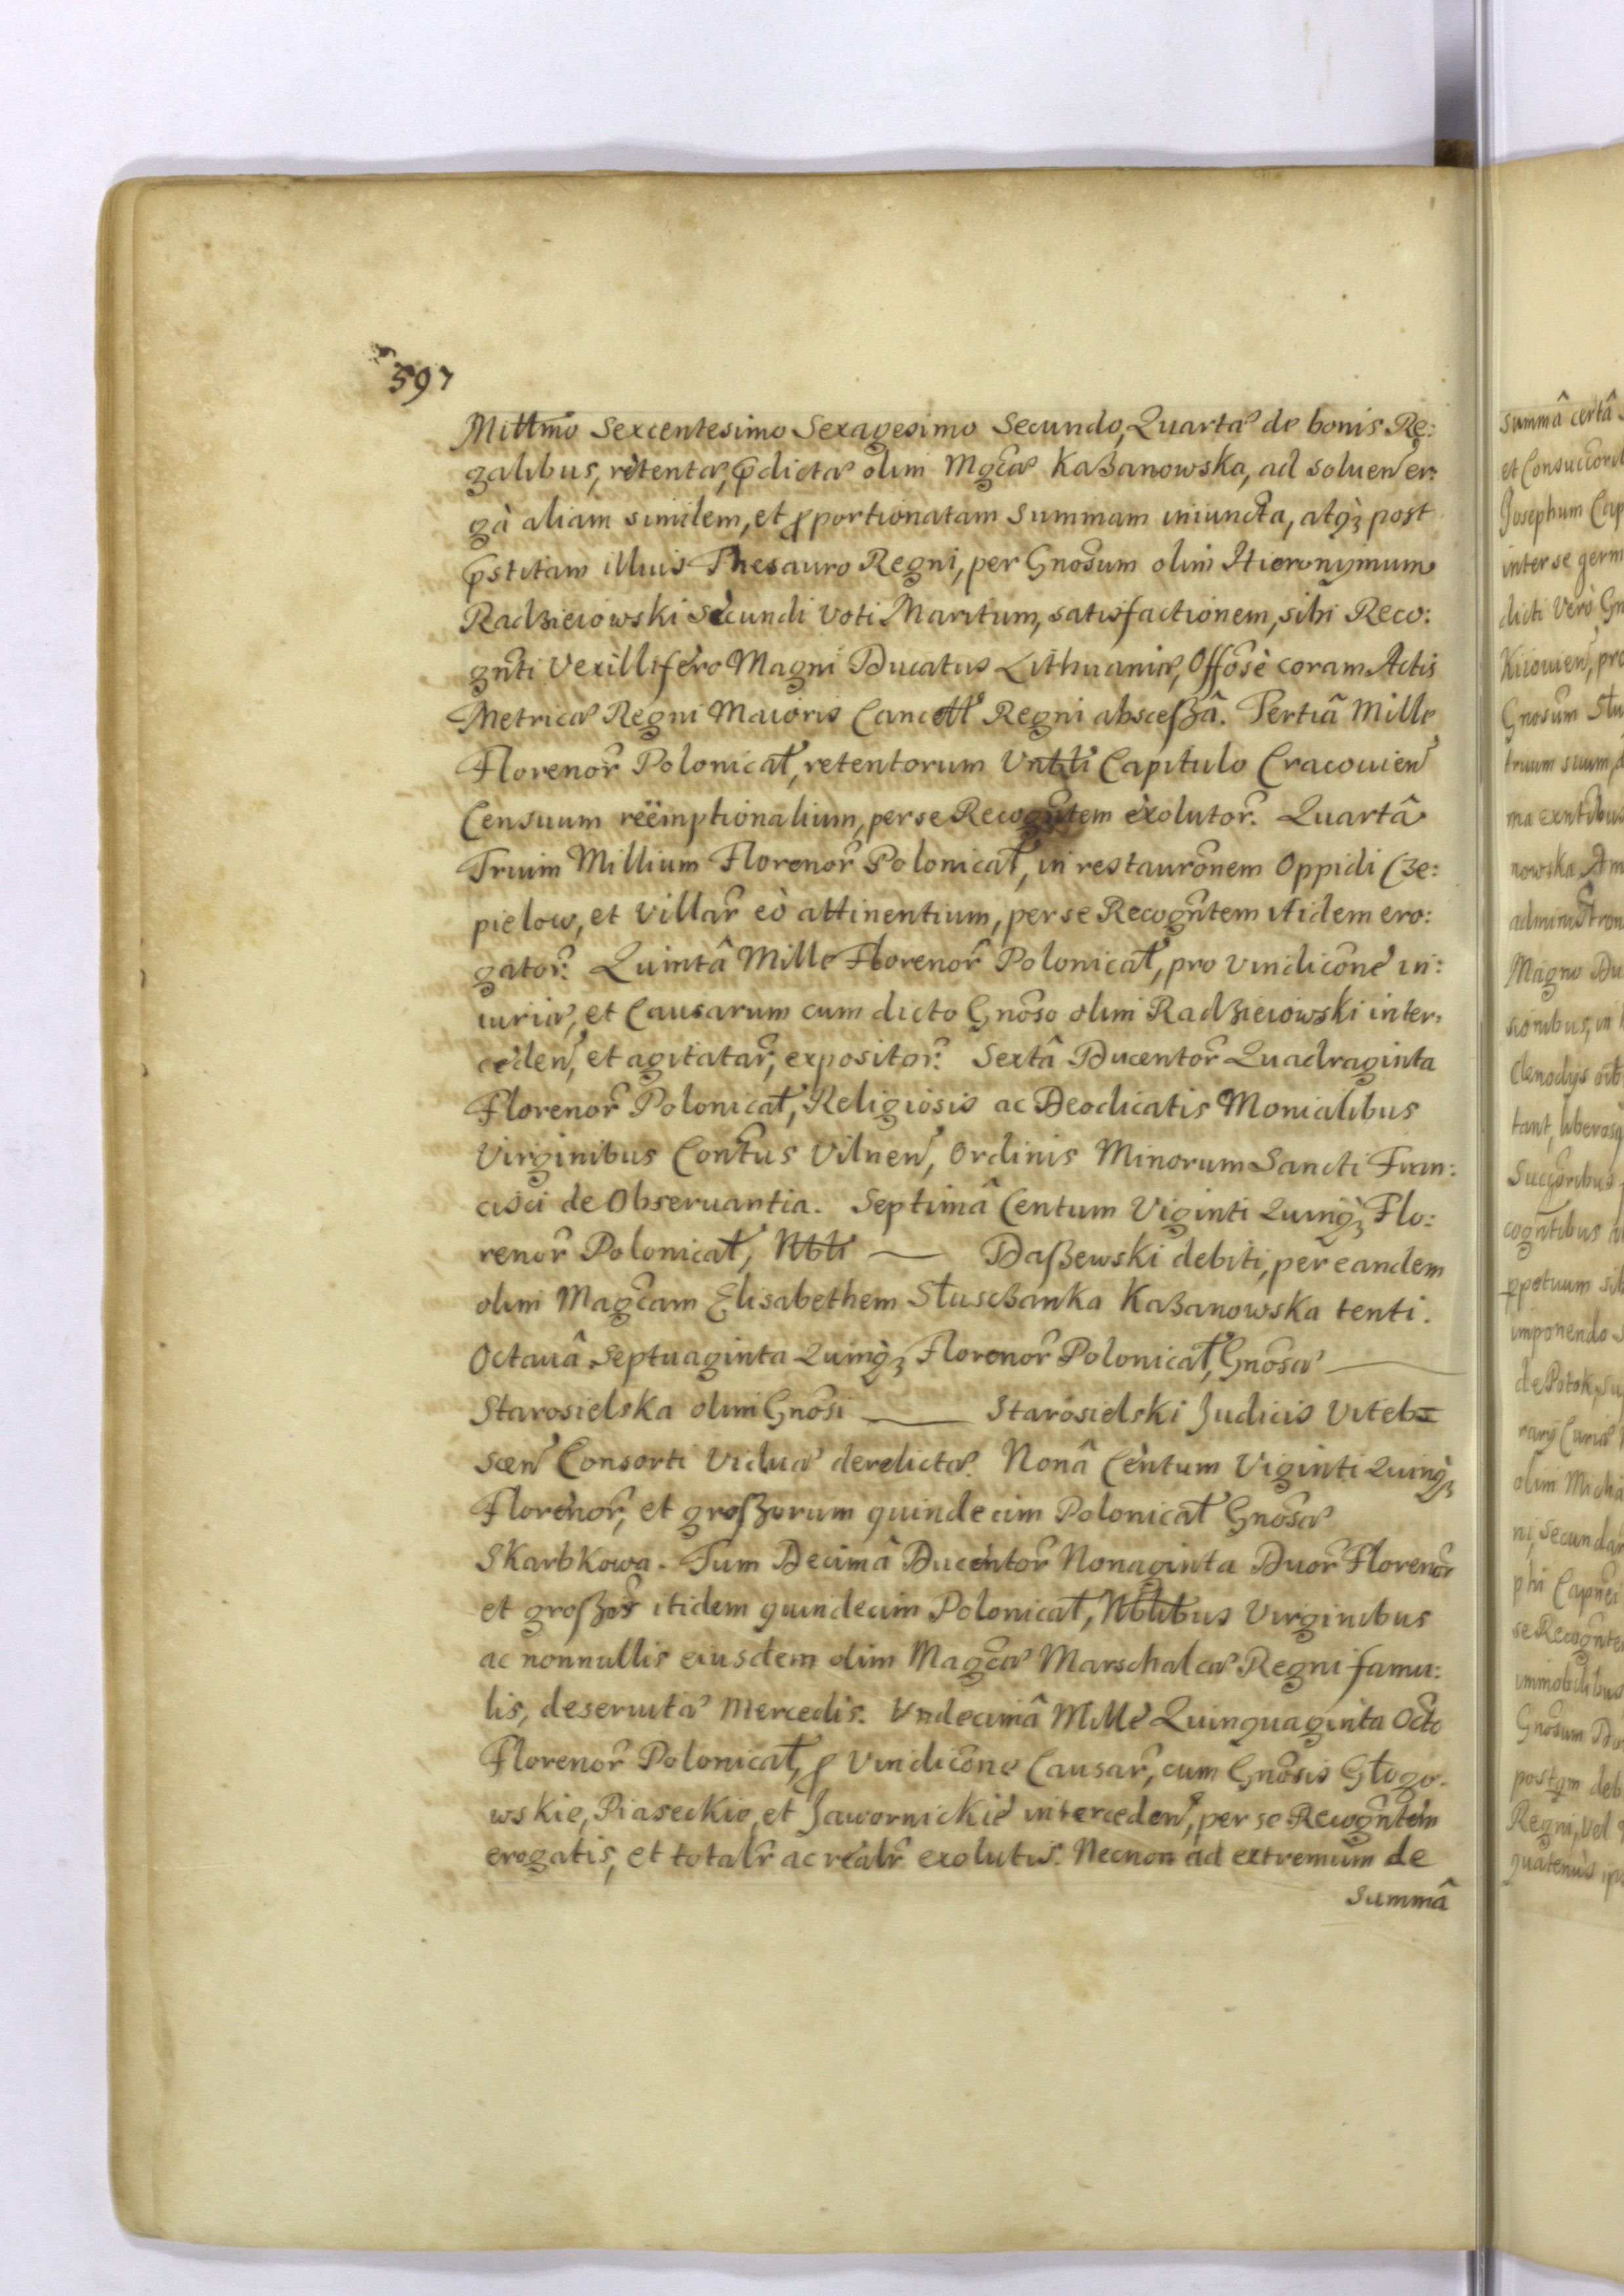 597
Millmo Sexcentesimo Sexagesimo Secundo, Quartæ de bonis Re:
galibus, retentæ, p̃dictæ olim Mgcæ Kaßanowska, ad soluen̄ er:
gà aliam similem, et p̱portionatam Summam iniuncta, atq̀ꝫ post
p̃stitam illius Thesauro Regni, per Gnõsum olim Hieronymum
Radzieiowski Secundi Voti Maritum, satisfactionem, sibi Reco:
gn̄ti Vexillifero Magni Ducatus Lithuaniæ, Offõsè coram Actis
Metricæ Regni Maioris Cancell Regni abscessâ. Tertiâ Mille
Florenor̃ Polonical̃, retentorum Vnbli Capitulo Cracouien̄
Censuum rëemptionalium, per se Recogn̄tem exolutor̃. Quartâ
Trium Millium Florenor̃ Polonical̃, in restaurõnem Oppidi Cze:
pielow, et Villar̃ eò attinentium, per se Recogn̄tem itidem ero:
gator̃. Quintâ Mille Florenor̃ Polonical̃, pro vindicõne in:
iuriæ, et Causarum cum dicto Gnõso olim Radzieiowski inter:
ceden̄, et agitatar̃, expositor̃. Sextâ Ducentor̃ Quadraginta
Florenor̃ Polonical̃, Religiosis ac Deodicatis Monialibus
Virginibus Con̄tus Vilnen̄, Ordinis Minorum Sancti Fran:
cisci de Obseruantia. Septimâ Centum Viginti Quinq̀ꝫ Flo:
renor̃ Polonical̃, Nbli — Daßewski debiti, per eandem
olim Magcam Elisabethem Słuszanka Kaßanowska tenti.
Octauâ Septuaginta Quinq̀ꝫ Florenor̃ Polonical̃, Gnõsæ —
Starosielska olim Gnõsi — Starosielski Judicis Viteb=
scen̄ Consorti Viduæ derelictæ. Nonâ Centum Viginti Quinq̀ꝫ
Florenor̃, et großorum quindecim Polonical̃ Gnõsæ
Skarbkowa. Tum Decimâ Ducentor̃ Nonaginta Duor̃ Florenor̃
et großor̃ itidem quindecim Polonical̃, Nblibus Virginibus
ac nonnullis eiusdem olim Magcæ Marschalcæ Regni famu:
lis, deseruitæ Mercedis. Vndecimâ Mille Quinquaginta Octo
Florenor̃ Polonical̃, p̱ Vindicõne Causar̃, cum Gnõsis Głogo:
wskie, Piaseckie, et Jawornickie interceden̄, per se Recogn̄tem
erogatis, et totalr̃ ac realr̃ exolutis. Necnon ad extremum de
Summâ
Summâ certâ
et Consuccor
Josephum Cap
inter se germ
dicti Verò Gn
Kiiouien̄, pro
Gnosum Słu
truum suum,
ma exn̄tibus
nowska, Am
administron
Magno Du
sionibus, in
Clenodys
tant, liberosq
Succõribus
cogn̄tibus
p̱petuum sil
imponendo
de Potok, su
rarij Curiæ
olim Micha
ni, Secundar
phi Capnei
se Recogn̄te
immobilibus
Gnõsum
postqm deb
Regni, Vel
quatenùs ips